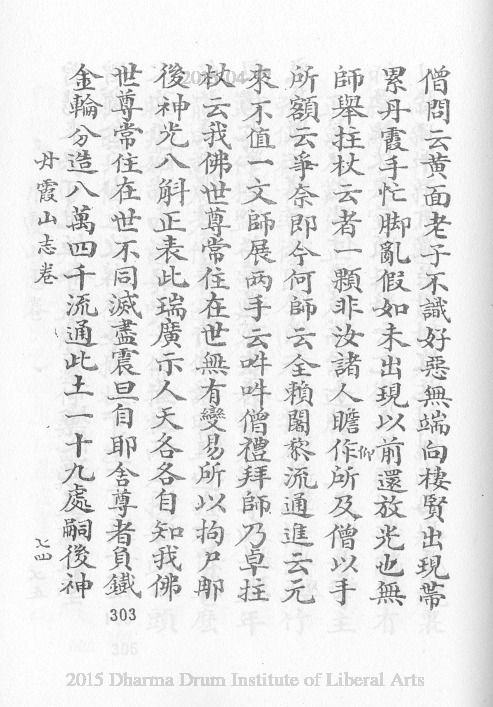 僧問云黄面老子不識好惡無端向棲賢出現帶
累丹霞手忙脚亂假如未出現以前還放光也無
師舉拄杖云者一顆非汝諸人瞻仰作所及僧以手
所額云爭奈即今何師云全賴闍黎流通進云元
來不值一文師展两手云吽吽僧禮拜師乃卓拄
杖云我佛世尊常住在世無有變易所以拘尸那
後神光八斛正表此瑞廣示人天各各自知我佛
世尊常住在世不同滅盡震旦自耶舍尊者負鐵
金輪分造八萬四千流通此土一十九處嗣後神
丹霞山志卷
七四
303
2015 Dharma Drum Institute of Liberal Arts